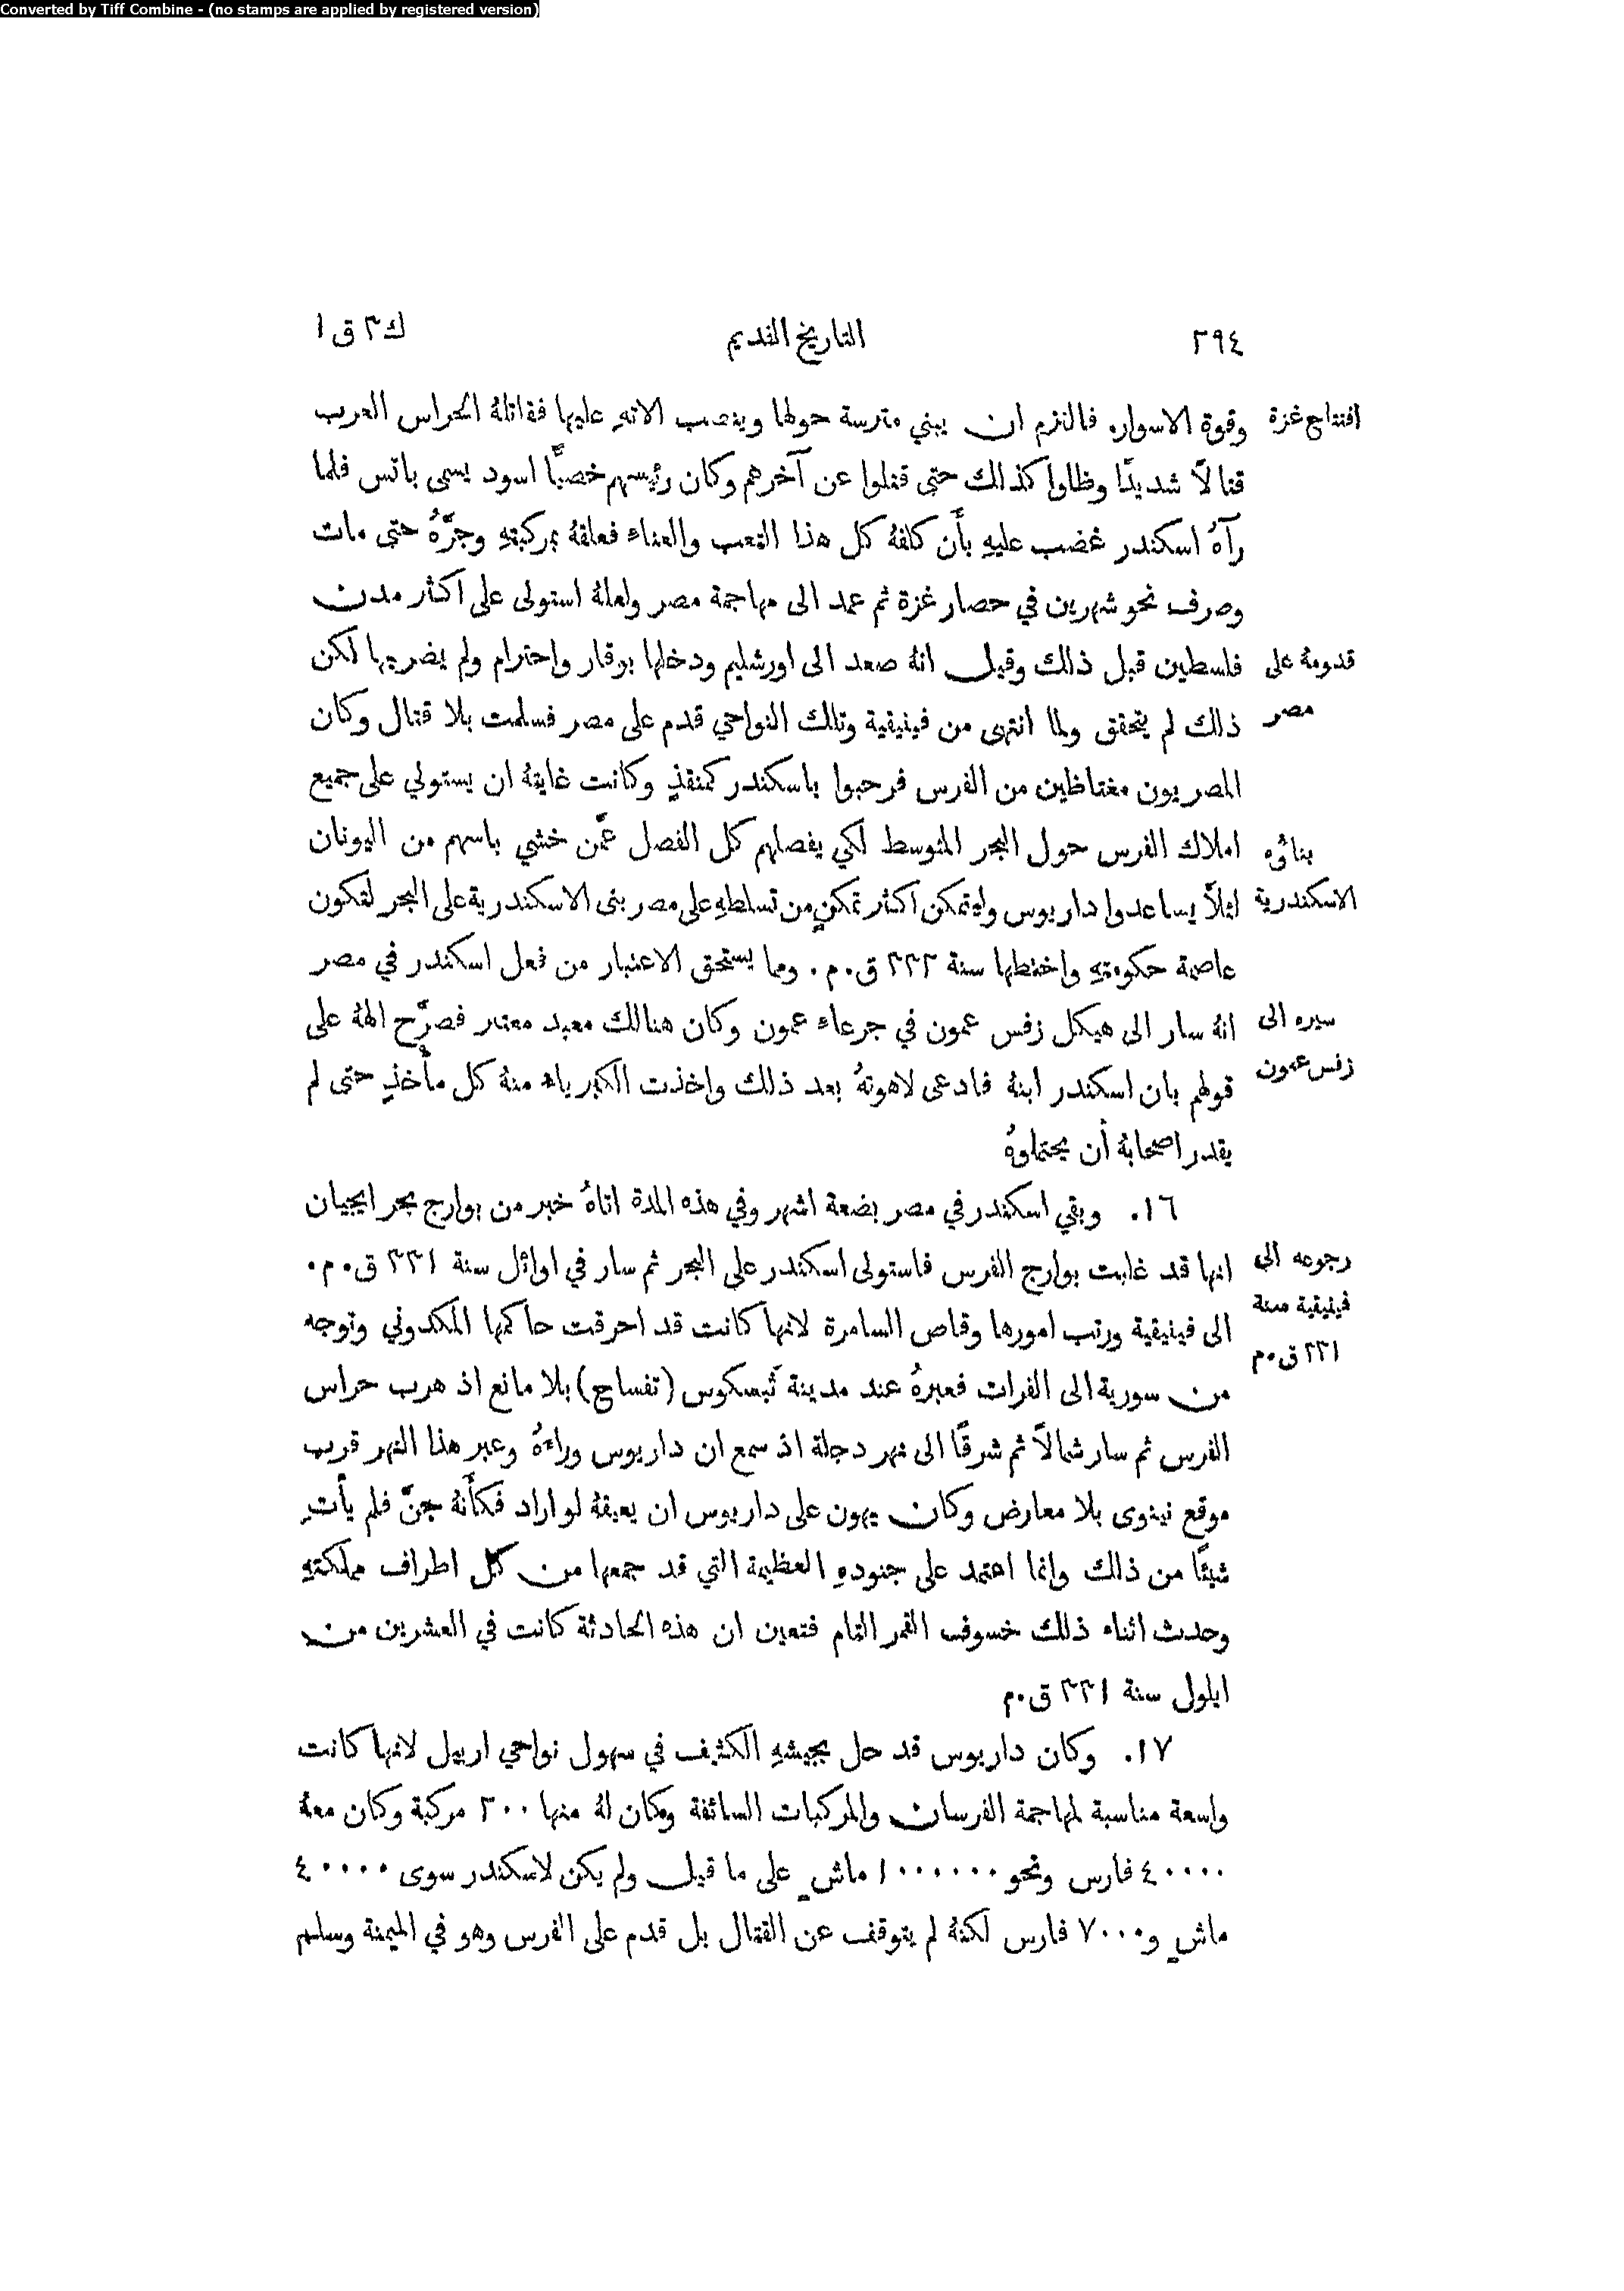 Converted by Tiff Combine - (no stamps are applied by registered version)
٢٩٤ التاريخ القديم ك٣ ق١
افتتاح غزة
وقوة الاسوار. فالتزم ان يبني مترسة حولها وينصب الاتهِ عليها فقاتلهُ الحراس العرب
قتالاً شديدًا وظلوا كذلك حتى قتلوا عن آخرهم وكان رئيسهم خصيًّا اسود يسمى باتس فلما
رآهُ اسكندر غضب عليهِ بأَن كلفهُ كل هذا التعب والعناء فعلقهُ بمركبتهِ وجرَّهُ حتى مات
وصرف نحو شهرين في حصار غزة ثم عمد الى مهاجمة مصر ولعلهُ استولى على اكثر مدن
قدومهُ على
فلسطين قبل ذلك وقيل انهُ صعد الى اورشليم ودخلها بوقار واحترام ولم يضر بها لكن
مصر
ذلك لم يتحقق ولما انتهى من فينيقية وتلك النواحي قدم على مصر فسلمت بلا قتال وكان
المصريون مغتاظين من الفرس فرحبوا باسكندر كمنقذٍ وكانت غايتهُ ان يستولي على جميع
بنائه
املاك الفرس حول البحر المتوسط لكي يفصلهم كل الفصل عمَّن خشي باسهم من اليونان
الاسكندرية
لئلاَّ يساعدوا داريوس وليتمكن اكثر تمكنٍ من تسلطهِ على مصر بنى الاسكندرية على البحر لتكون
عاصمة حكومتهِ واختطها سنة ٣٣٢ ق.م. ومما يستحق الاعتبار من فعل اسكندر في مصر
سيره الى
انهُ سار الى هيكل زفس عمون في جرعاء عمون وكان هنالك معبد معتبر فصرَّح الههُ على
زفس عمون
قولهم بان اسكندر ابنهُ فادعى لاهوتهُ بعد ذلك واخذت الكبرياء منهُ كل مأْخذٍ حتى لم
يقدر اصحابهُ أن يحتملوهُ
١٦. وبقي اسكندر في مصر بضعة اشهر وفي هذه المدة اتاهُ خبر من بوارج بحر ايجيان
رجوعه الى
انها قد غلبت بوارج الفرس فاستولى اسكندر على البحر ثم سار في اوائل سنة ٣٣١ ق.م.
فينيقية سنة
الى فينيقية ورتب امورها وقاص السامرة لانها كانت قد احرقت حاكمها المكدوني وتوجه
٣٣١ ق.م
من سورية الى الفرات فعبرهُ عند مدينة ثبسكوس (تفساح) بلا مانع اذ هرب حراس
الفرس ثم سار شمالاً ثم شرقًا الى نهر دجلة اذ سمع ان داريوس وراءهُ وعبر هذا النهر قرب
موقع نينوى بلا معارض وكان يهون على داريوس ان يعيقهُ لو اراد فكأَنهُ جنَّ فلم يأْتِ
شيئًا من ذلك وانما اعتمد على جنودهِ العظيمة التي قد جمعها من كل اطراف مملكتهِ
وحدث اثناء ذلك خسوف القمر التام فتعين ان هذه الحادثة كانت في العشرين من
ايلول سنة ٣٣١ ق.م
١٧. وكان داريوس قد حل بجيشهِ الكثيف في سهول نواحي اربيل لانها كانت
واسعة مناسبة لمهاجمة الفرسان والمركبات السائفة وكان لهُ منها ٢٠٠ مركبة وكان معهُ
٤٠٠٠٠ فارس ونحو ١٠٠٠٠٠٠ ماشٍ على ما قيل ولم يكن لاسكندر سوى ٤٠٠٠٠
ماشٍ و٧٠٠٠ فارس لكنهُ لم يتوقف عن القتال بل قدم على الفرس وهو في الميمنة وسلم